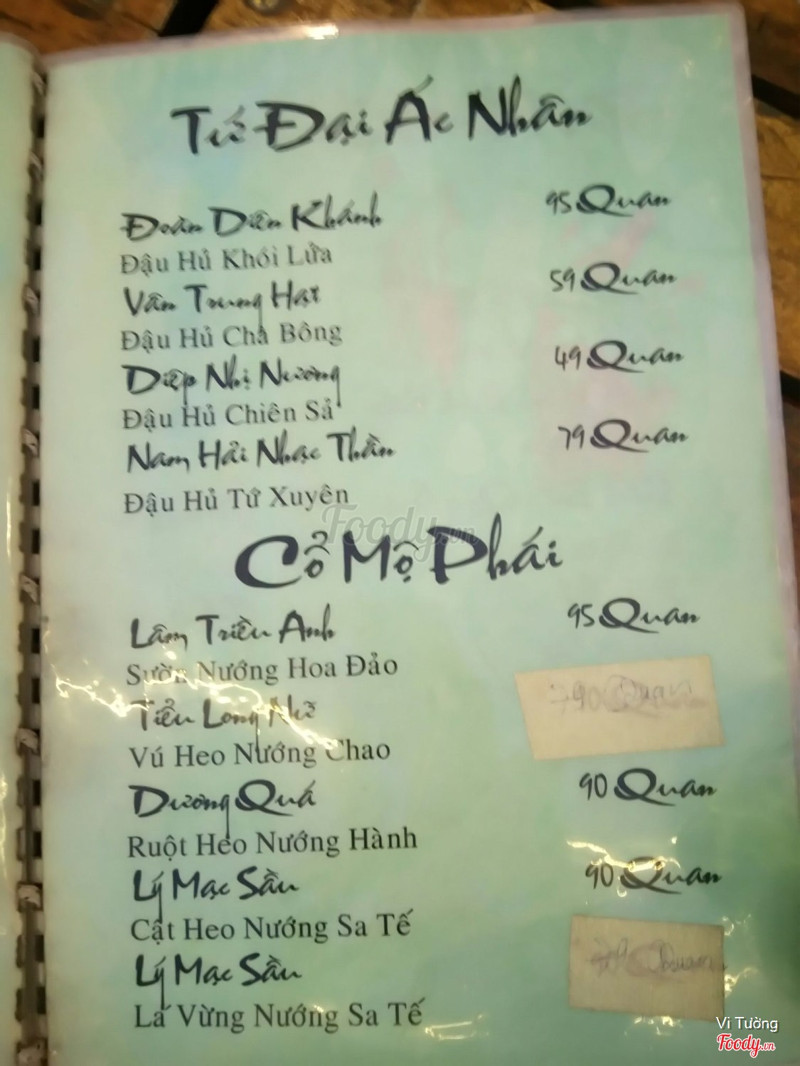 Tứ Đại Ác Nhân
Đoàn Diên Khánh 95 Quan
Đậu Hủ Khói Lửa
Vân Trung Hạt 59 Quan
Đậu Hủ Chà Bông
Diệp Nhị Nương 49 Quan
Đậu Hủ Chiên Sả
Nam Hải Nhạc Thần 79 Quan
Đậu Hủ Tứ Xuyên
Foody.vn
Cổ Mộ Phái
Lâm Triều Anh 95 Quan
Sườn Nướng Hoa Đảo
Tiểu Long Nữ Quan
Vú Heo Nướng Chao
Dương Quá 90 Quan
Ruột Heo Nướng Hành
Lý Mạc Sầu 90 Quan
Cật Heo Nướng Sa Tế
Lý Mạc Sầu Quan
Lá Vừng Nướng Sa Tế
Vi Tường
Foody.vn